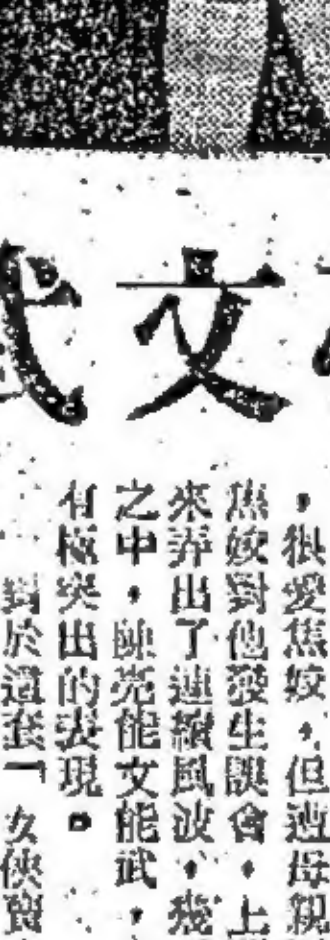 文武
，狠愛焦姣，但遭母親
焦姣對他發生誤會，上
來弄出了連續風波，幾
之中，陳亮能文能武，
有極突出的表現。
對於這套「女俠賣